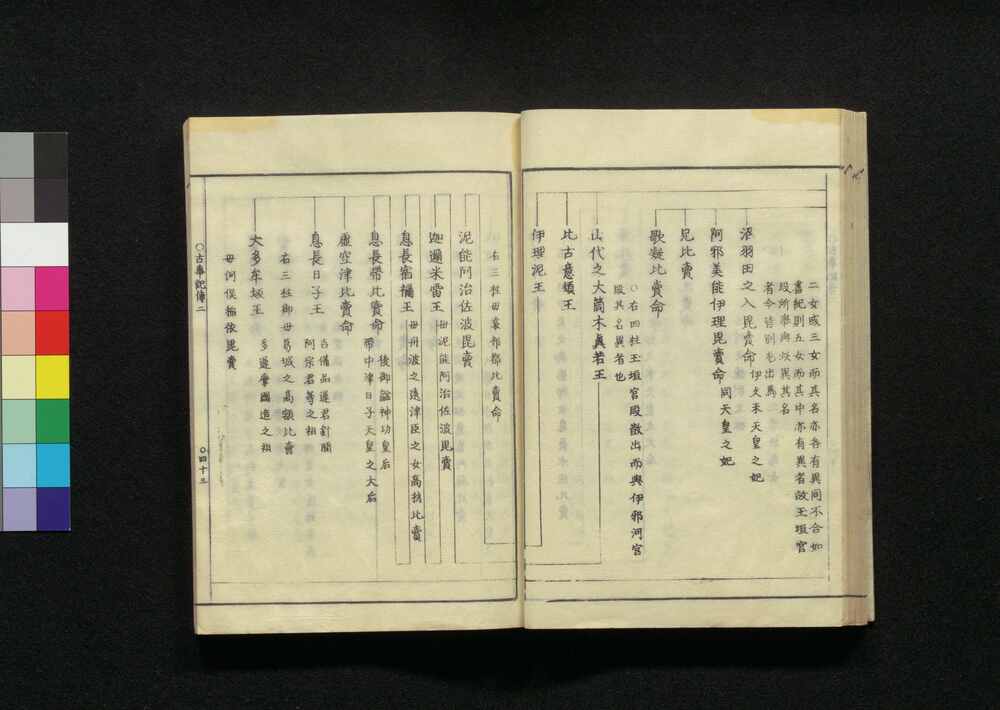 二女或三女而其名亦各有異同不合如
書紀則五女而其中亦有異者故玉垣宮
段所擧與
者今皆別
沼羽田之入毘賣命
伊久米天皇之妃
阿邪美能伊理毘賣命
同天皇之妃
兄比賣
歌凝比賣命
○右四柱玉垣宮段散出而與伊邪河宮
段其名異者也
山代之大箇木眞若王
比古意須王
伊理泥王
右三柱母袁祁都比賣命
泥能阿治佐波毘賣
迦邇米雷王
母泥能阿治佐波毘賣
息長宿禰王
母丹波之遠津臣之女高材比賣
息長帶比賣命
後御諡神功皇后
帶中津日子天皇之大后
虛空津比賣命
息長日子王
吉備品遲君針間
阿宗君等之祖
右三柱御母葛城之高額比賣
大多牟坂王
多遲摩國造之祖
母河俣稻依毘賣
○古事記傳二
○四十三